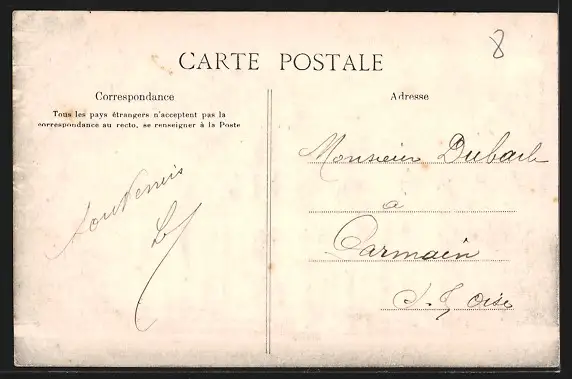 8
CARTE POSTALE
Correspondance
Tous les pays étrangers n'acceptent pas la
correspondance au recto, se renseigner à la Poste
Adresse
Monsieur Dubach
à
Parmain
S. &, Oise
Souvenirs